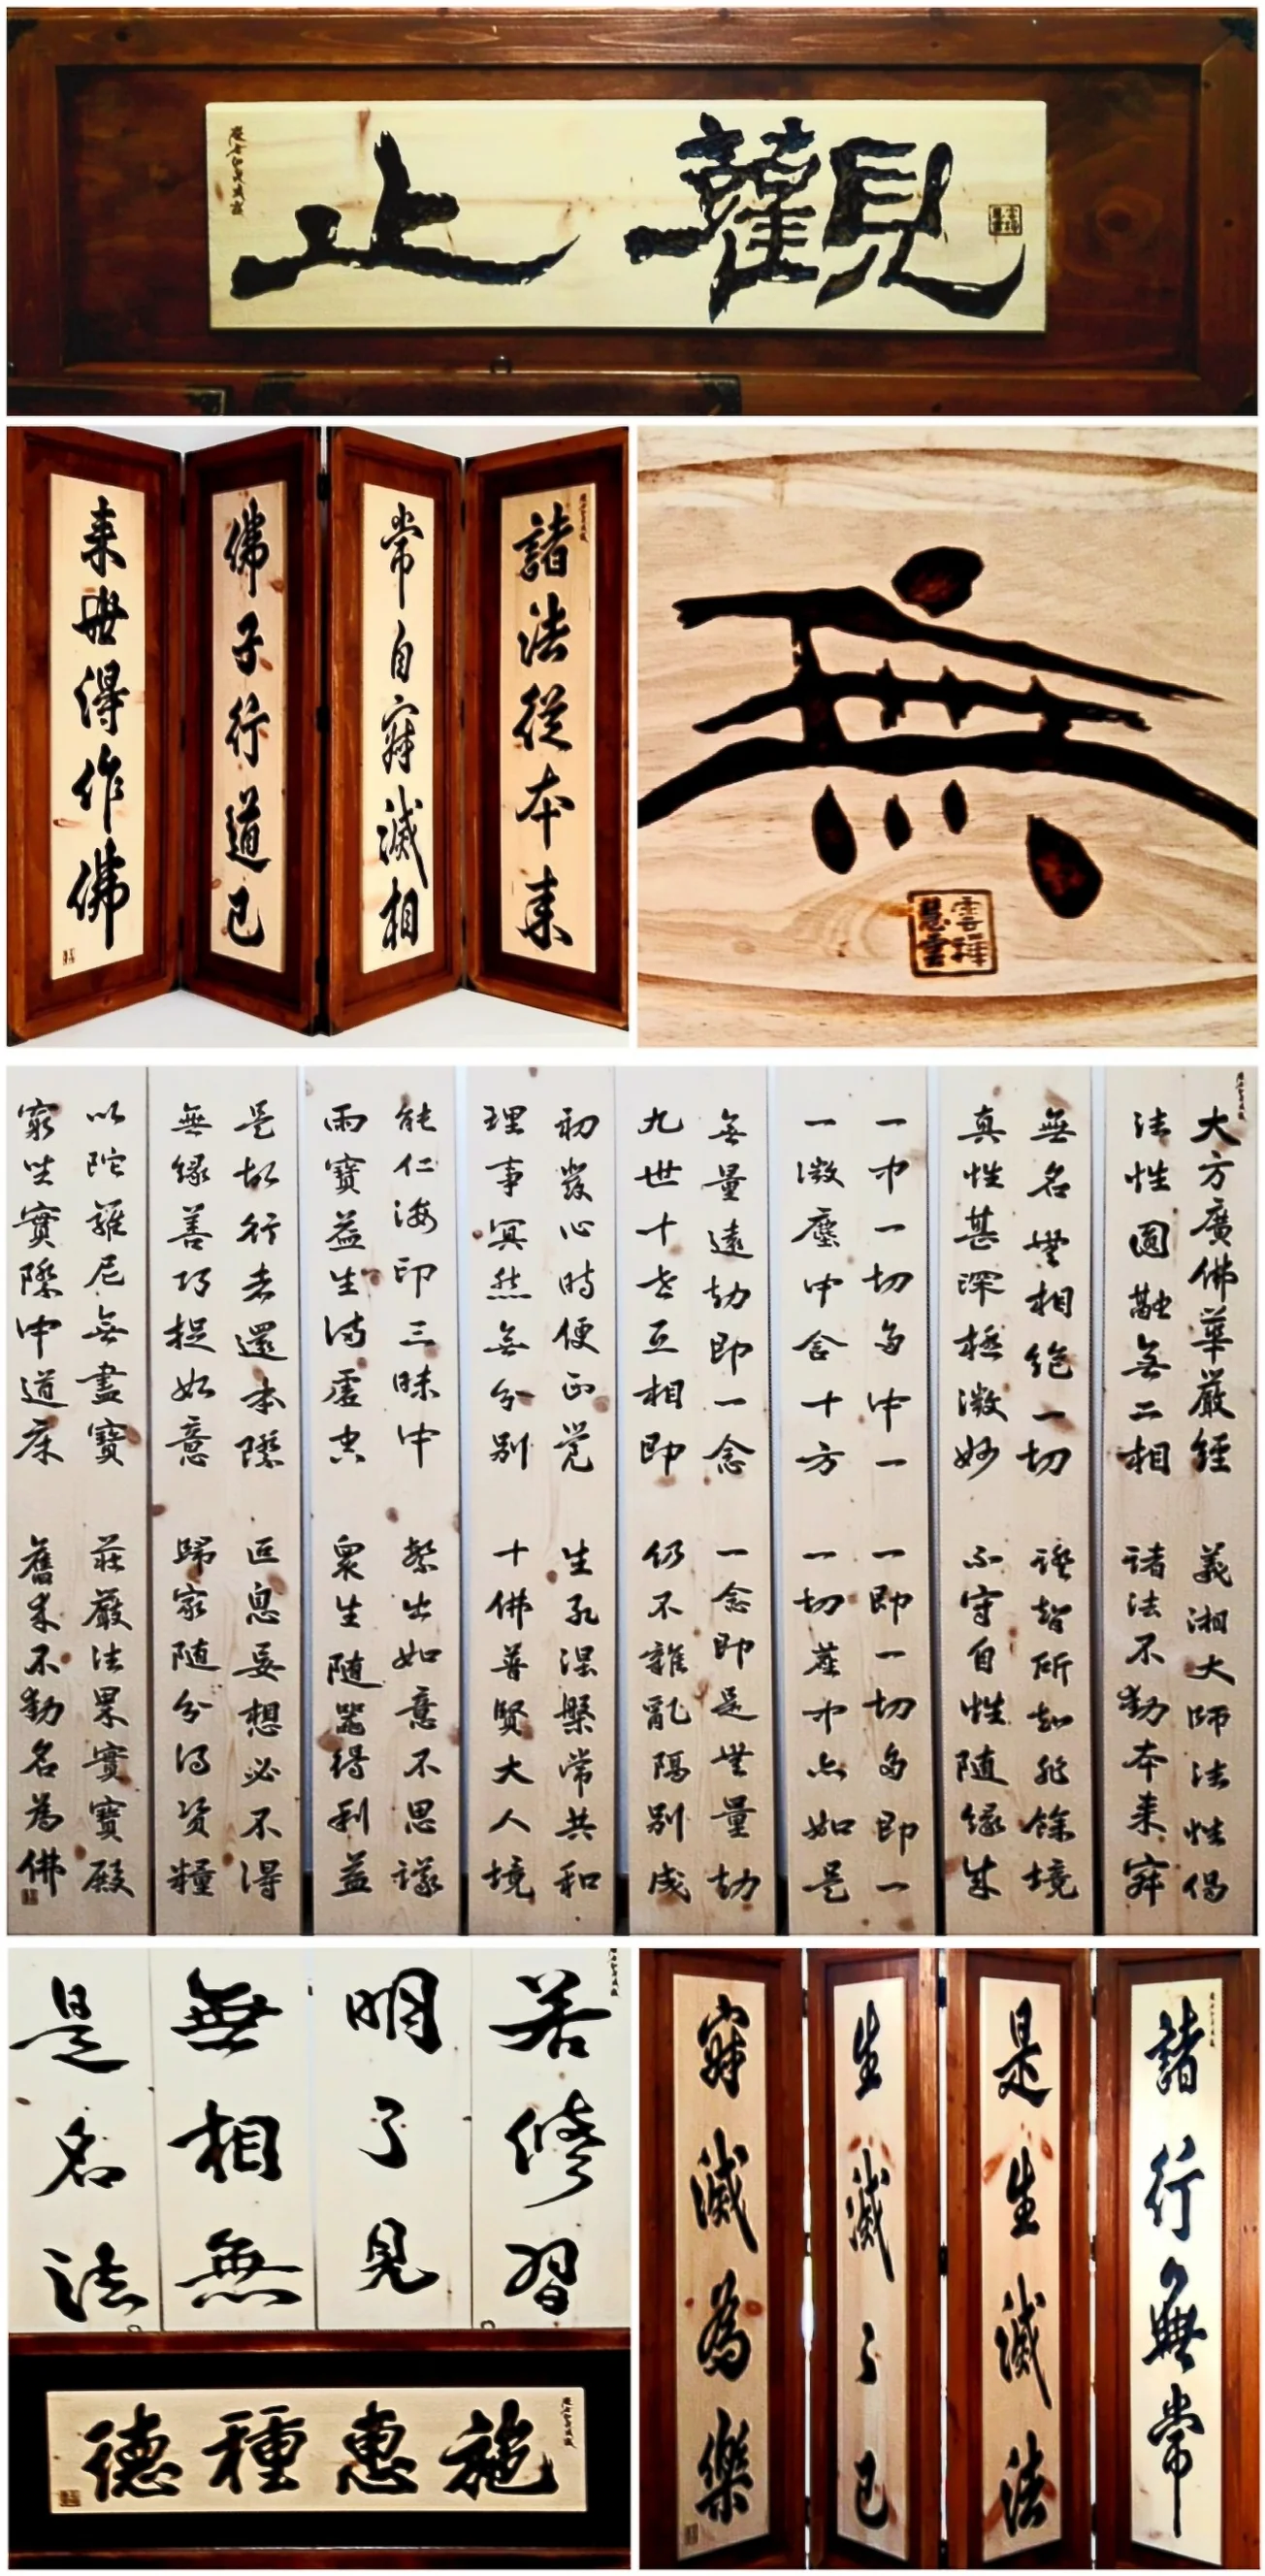 止觀
諸法從本來
常自寂滅相
佛子行道已
來世得作佛
無
大方廣佛華嚴經 義湘大師法性偈
法性圓融無二相 諸法不動本來寂
無名無相絕一切 證智所知非餘境
真性甚深極微妙 不守自性隨緣成
一中一切多中一 一即一切多即一
一微塵中含十方 一切塵中亦如是
無量遠劫即一念 一念即是無量劫
九世十世互相即 仍不雜亂隔別成
初發心時便正覺 生死涅槃常共和
理事冥然無分別 十佛普賢大人境
能仁海印三昧中 繁出如意不思議
雨寶益生滿虛空 眾生隨器得利益
是故行者還本際 叵息妄想必不得
無緣善巧捉如意 歸家隨分得資糧
以陀羅尼無盡寶 莊嚴法界實寶殿
窮坐實際中道床 舊來不動名為佛
若修習
明了見
無相無
是名法
施惠種德
諸行無常
是生滅法
生滅了已
寂滅為樂